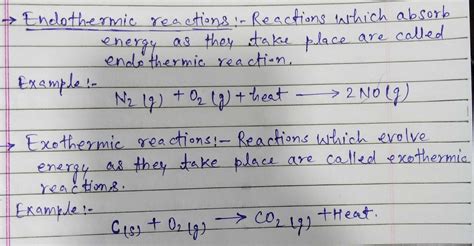 → Endothermic reactions:- Reactions which absorb
energy as they take place are called
endothermic reaction.
Example:-
N₂ (g) + O₂ (g) + heat ⟶ 2 NO (g)
→ Exothermic reactions:- Reactions which evolve
energy as they take place are called exothermic
reactions.
Example:-
C(s) + O₂ (g) ⟶ CO₂ (g) + Heat.